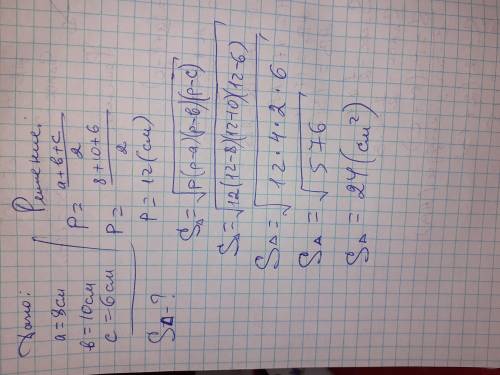 Дано:
a = 8см
в = 10см
c = 6см
S△ = ?
Решение.
P = a+в+c / 2
P = 8+10+6 / 2
P = 12 (см)
S△ = √p(p-a)(p-в)(p-c)
S△ = √12(12-8)(12+0)(12-6)
S△ = √12·4·2·6
S△ = √576
S△ = 24 (см²)